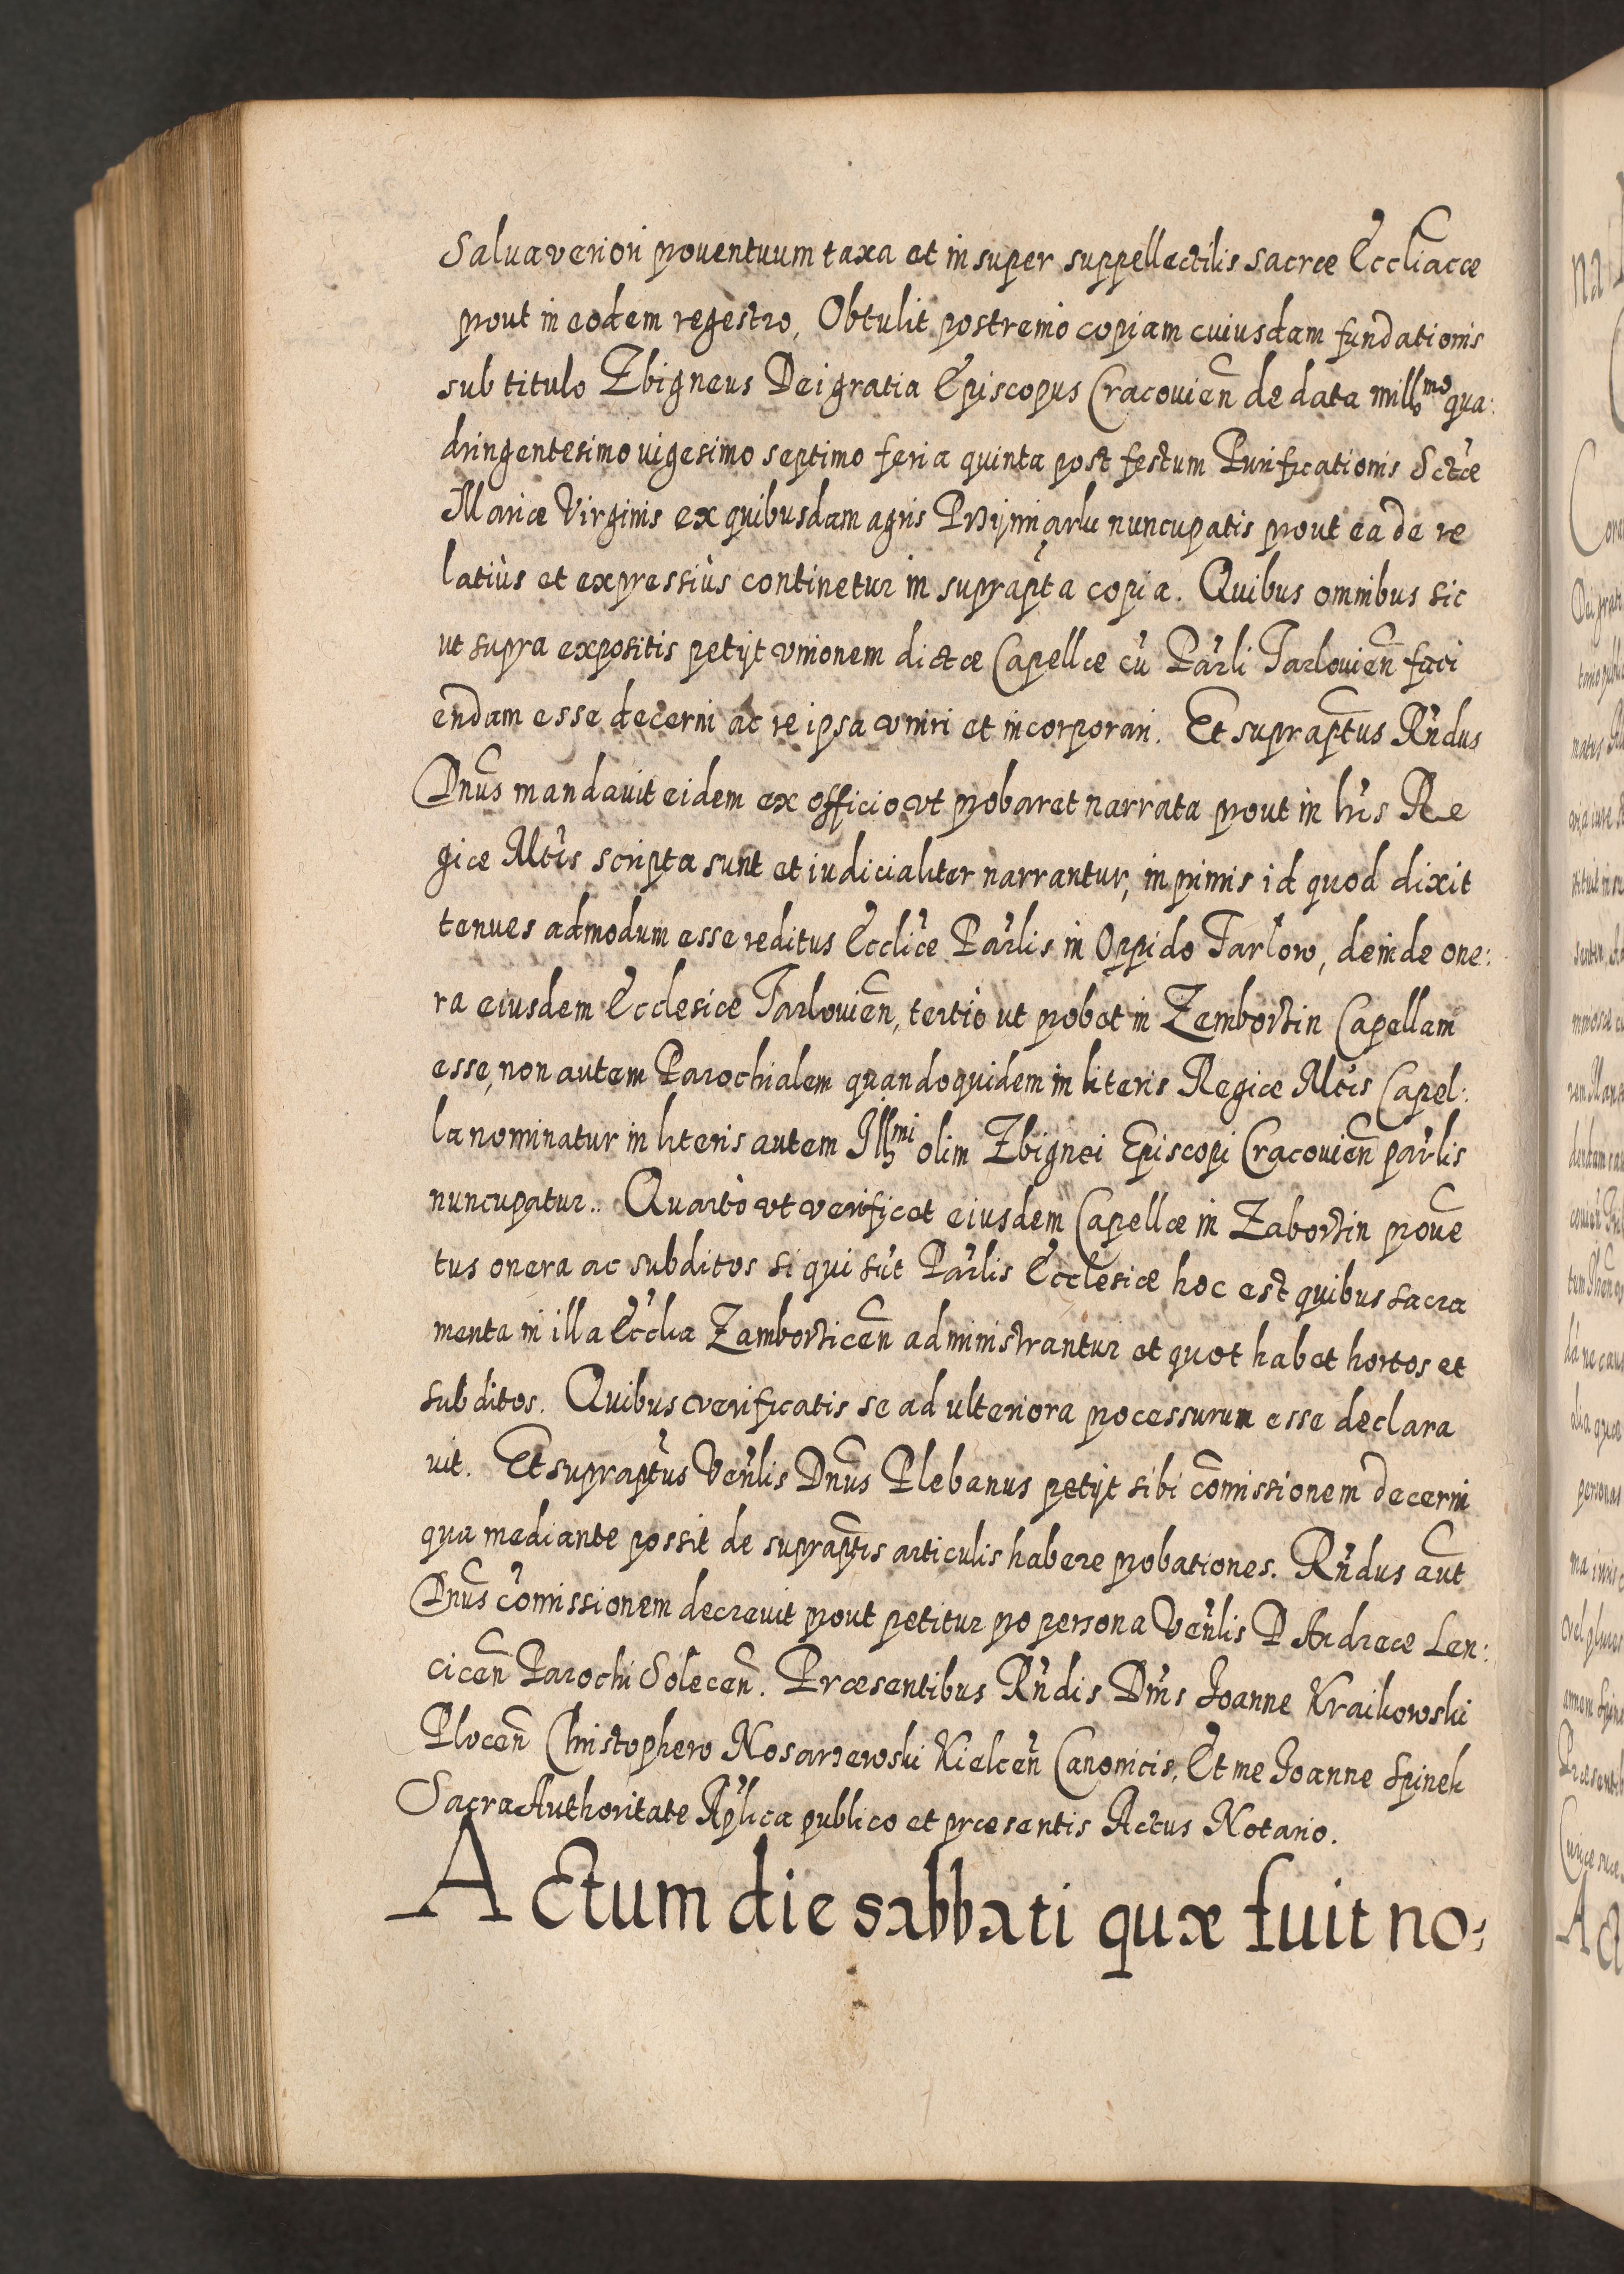 Salva veriori proventuum taxa et in super suppellectilis sacræ Eccliacæ
prout in eodem regestro, Obtulit postremo copiam cuiusdam fundationis
sub titulo Zbigneus Dei gratia Episcopus Cracovien̄ de data mill^mo qua:
dringentesimo vigesimo septimo feria quinta post festum Purificationis Sctæ
Mariæ Virginis ex quibusdam agris nuncupatis prout ea de re
latiùs et expressiùs continetur in suprapta copia. Quibus omnibus sic
ut supra expositis petijt vnionem dictæ Capellæ cū Parli Tarlovien̄ faci
endam esse decerni ac re ipsa vniri et incorporari. Et supraptus Rn̄dus
Dn̄us mandavit eidem ex officio vt probaret narrata prout in lris Re
giæ Mtis scripta sunt et iudicialiter narrantur, in primis id quod dixit
tenues admodum esse reditus Eccliæ Parlis in Oppido Tarlow, deinde one:
ra eiusdem Ecclesiæ Tarlovien̄, tertiò ut probet in Zemborzin Capellam
esse, non autem Parochialem quandoquidem in literis Regiæ Mtis Capel:
la nominatur in literis autem Ill^mi olim Zbignei Episcopi Cracovien̄ parlis
nuncupatur.. Quartò vt verificet eiusdem Capellæ in Zaborzin provē
tus onera ac subditos si qui sūt Parlis Ecclesiæ hoc est quibus sacra
menta in illa Ecclia Zamborzicen̄ administrantur et quot habet hortos et
subditos. Quibus verificatis se ad ulteriora processurum esse declara
vit. Et supraptus Venlis Dn̄us Plebanus petijt sibi com̄issionem decerni
qua mediante possit de supraptis articulis habere probationes. Rn̄dus aut̄
Dn̄us com̄issionem decrevit prout petitur pro persona Venlis D Andreæ Len:
cicen̄ Parochi Solecen̄. Præsentibus Rn̄dis Dn̄is Joanne Kraikowski
Plocen̄ Christophero Nosarzewski Kielcen̄ Canonicis, Et me Joanne Spinek
Sacra Authoritate Aplica publico et præsentis Actus Notario.
Actum die sabbati quæ fuit no: